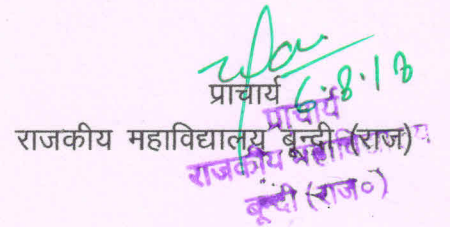 प्राचार्य
6.8.18
राजकीय महाविद्यालय बून्दी (राज)
प्राचार्य
राजकीय महाविद्यालय
बून्दी (राज०)